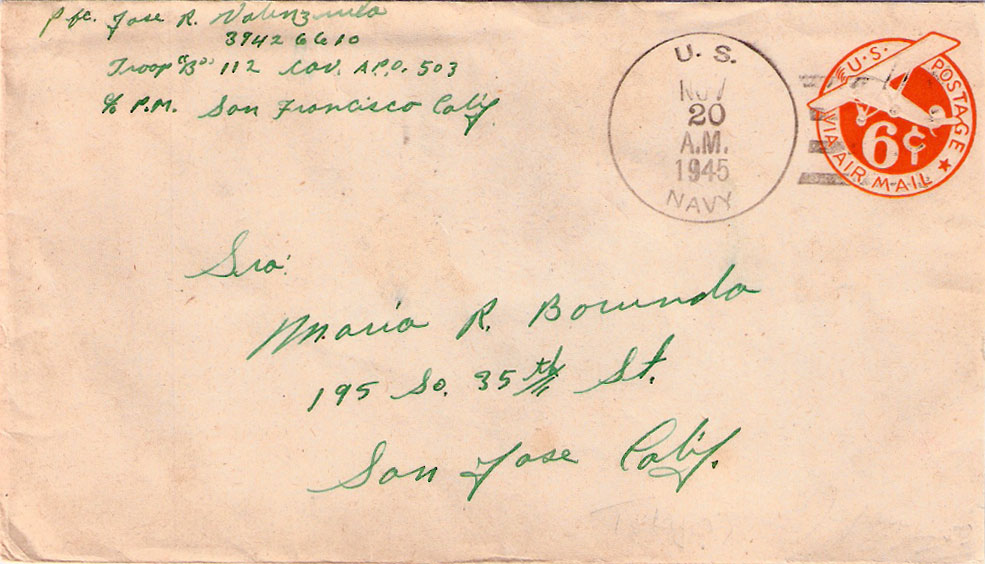 Pfc. Jose R. Valenzuela
39426610
Troop "B" 112 Cav. A.P.O. 503
c/o P.M. San Francisco Calif.
U. S.
NOV
20
A.M.
1945
NAVY
U.S. POSTAGE
6¢
VIA AIR MAIL
Sra:
Maria R. Borunda
195 So. 35th St.
San Jose Calif.